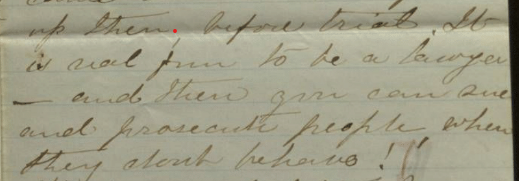 up then. before trial. It
is real fun to be a lawyer
– and then you can sue
and prosecute people when
they dont behave!"